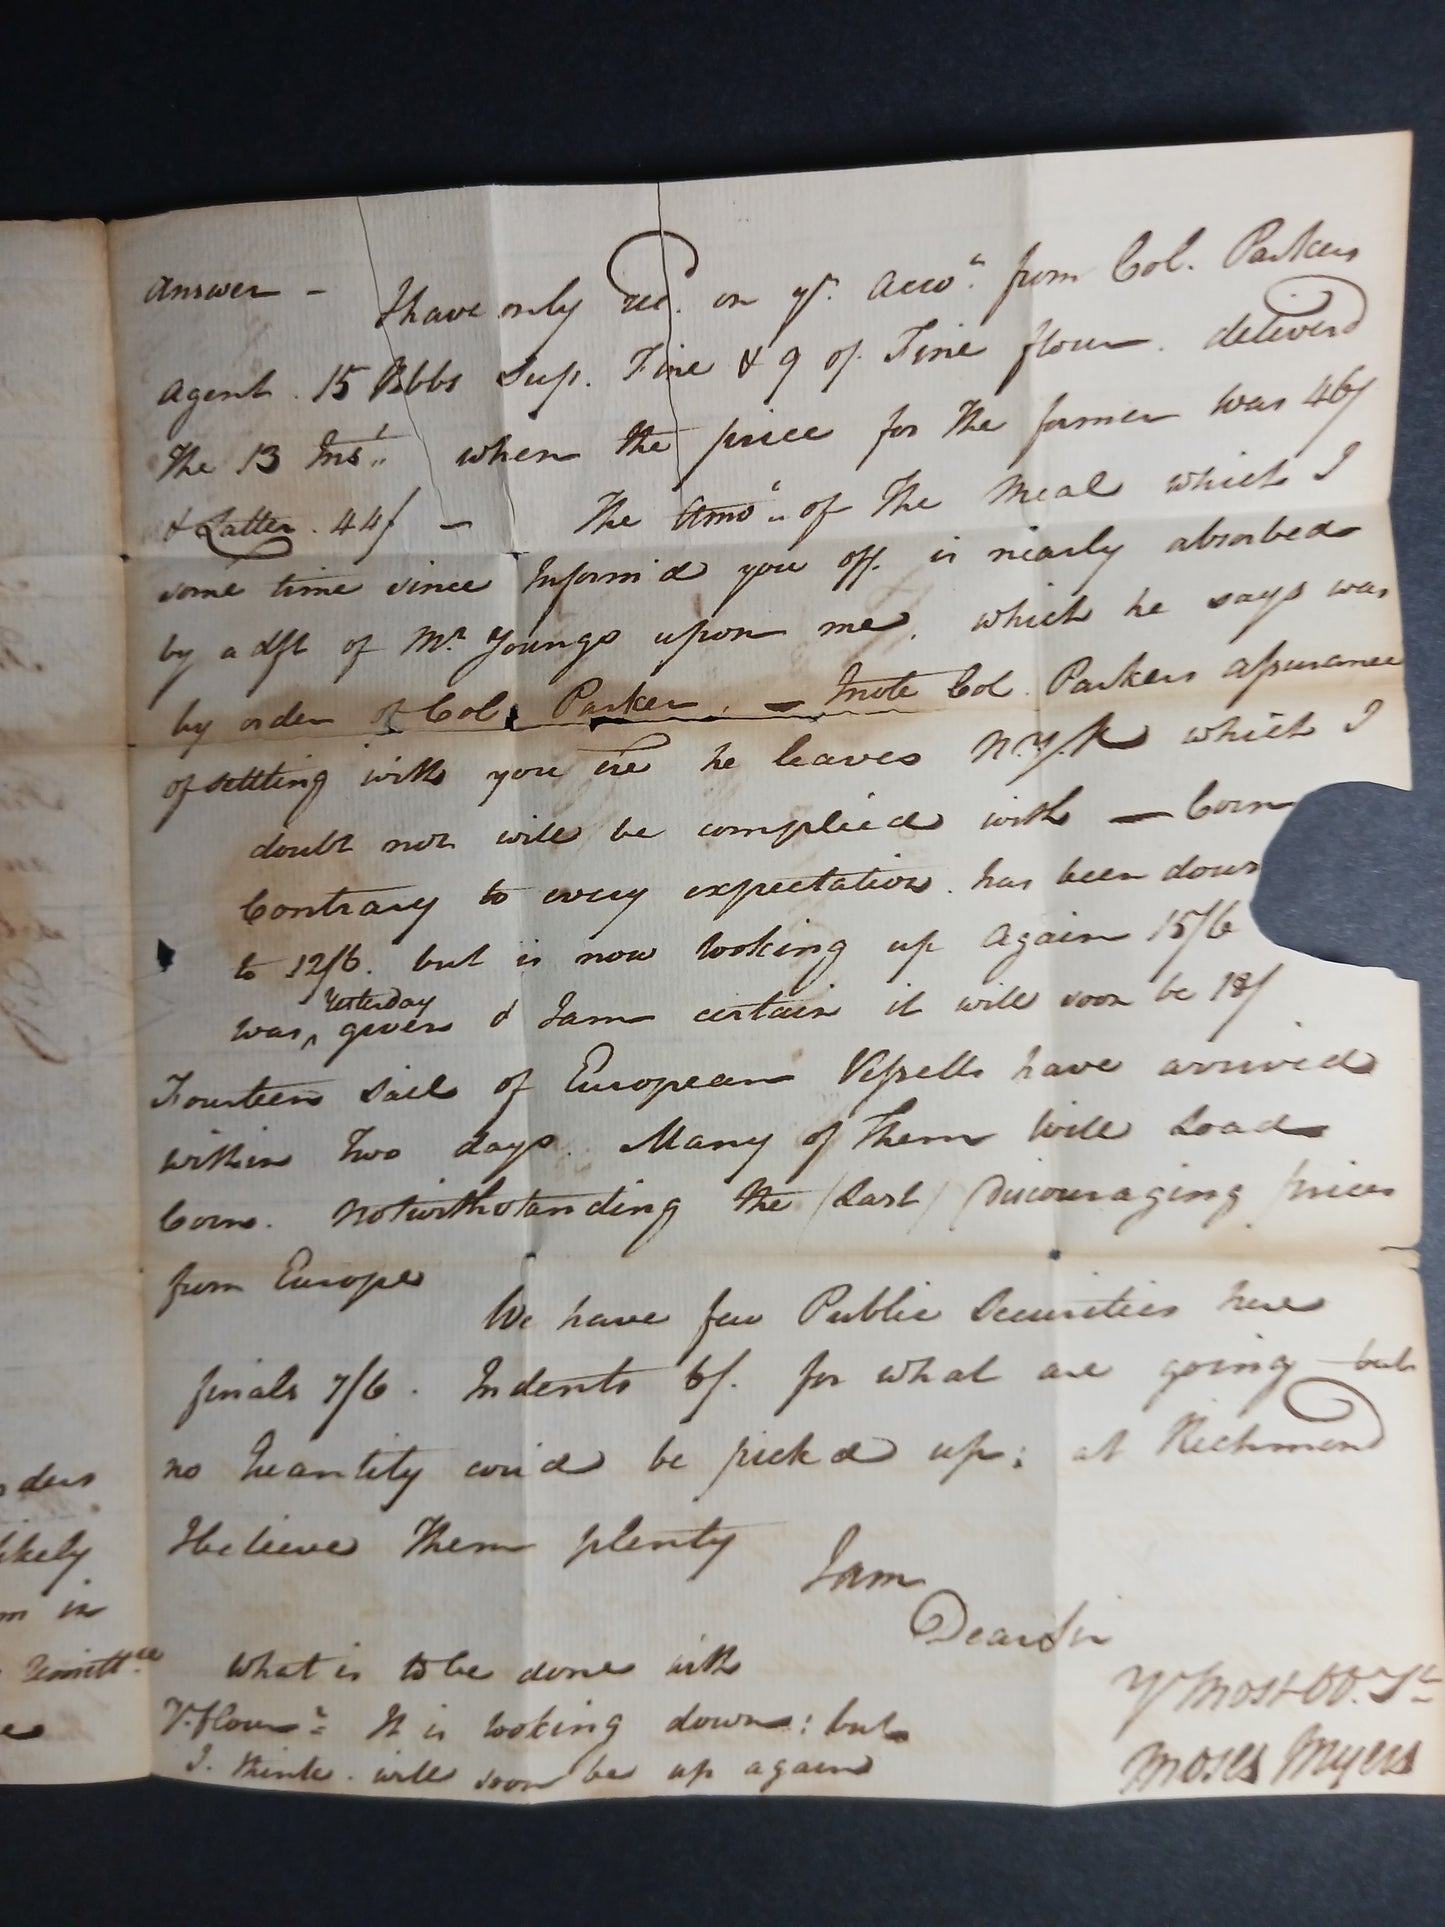 Answer – I have only rec.d on yr. Acco.t from Col. Parkers
Agent. 15 Bbbs Sup. Fine & 9 of Fine flour. deliverd
The 13 Inst. when the price for the former was 46/
& Latter. 44/ – The Amot. of The Meal which I
some time since Inform'd you off. is nearly absorbed
by a dft of Mr. Youngs upon me, which he says was
by order of Col. Parker. – I note Col. Parkers assurance
of settling with you ere he leaves N.Y.k which I
doubt not will be complied with – Corn
Contrary to every expectation. has been down
to 12/6. but is now looking up again 15/6
was ^ Yesterday given & I am certain it will soon be 18/
Fourteen Sail of European Vessells have arrived
within Two days. Many of Them Will Load
Corn. Notwithstanding The (Last) Discouraging prices
from Europe
We have few Public Securities here
finals 7/6. Indents 6/. for what are going but
no Quantity cou'd be pick'd up; at Richmond
I believe Them plenty
I am
Dear Sir
Yr Most Ob. St
Moses Myers
What is to be done with
Yr. flour? It is looking down: but
I. think. will soon be up again
ders
likely
m in
Remittce